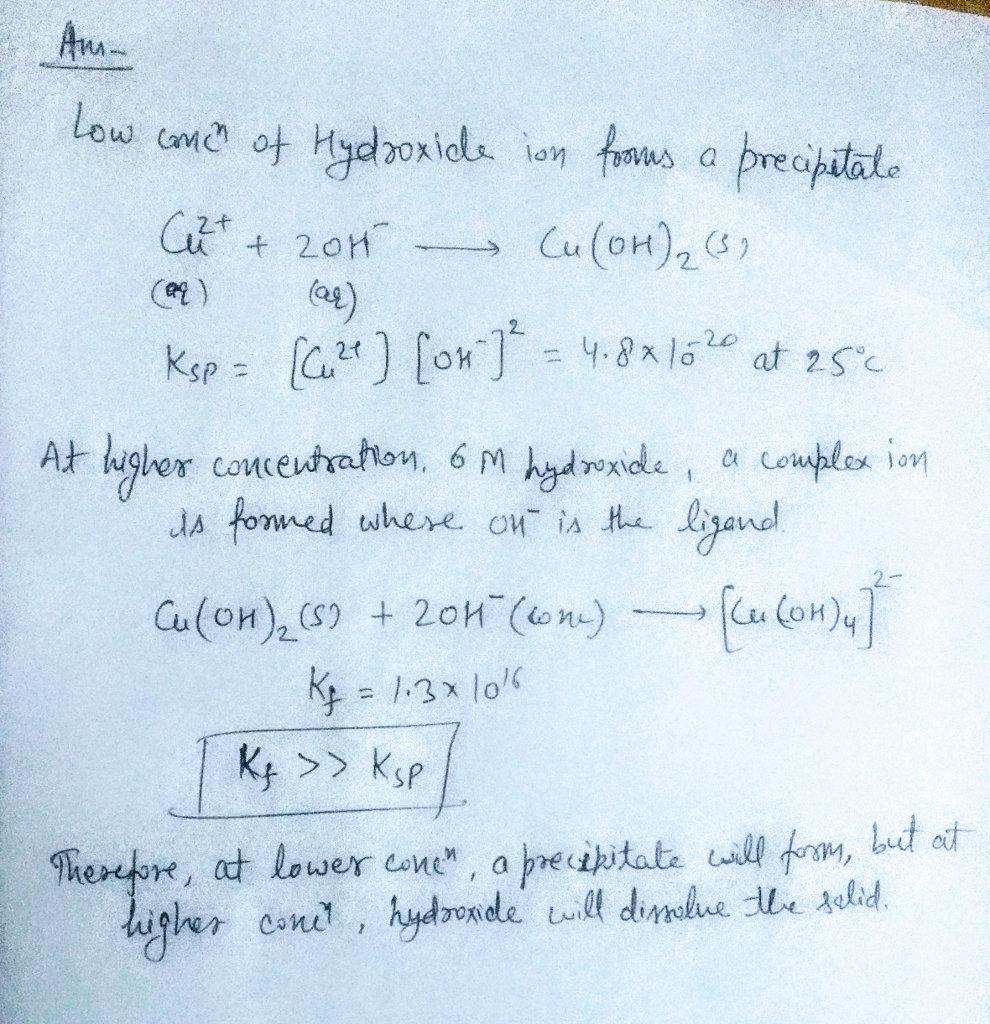 Ans-
Low concn of Hydroxide ion forms a precipitate
Cu²⁺ + 2OH⁻ ⟶ Cu(OH)₂ (s)
(aq) (aq)
Ksp = [Cu²⁺] [OH⁻]² = 4.8 x 10⁻²⁰ at 25°C
At higher concentration, 6 M hydroxide, a complex ion
is formed where OH⁻ is the ligand
Cu(OH)₂ (s) + 2OH⁻ (conc) ⟶ [Cu(OH)₄]²⁻
Kf = 1.3 x 10¹⁶
Kf >> Ksp
Therefore, at lower concn, a precipitate will form, but at
higher concn, hydroxide will dissolve the solid.